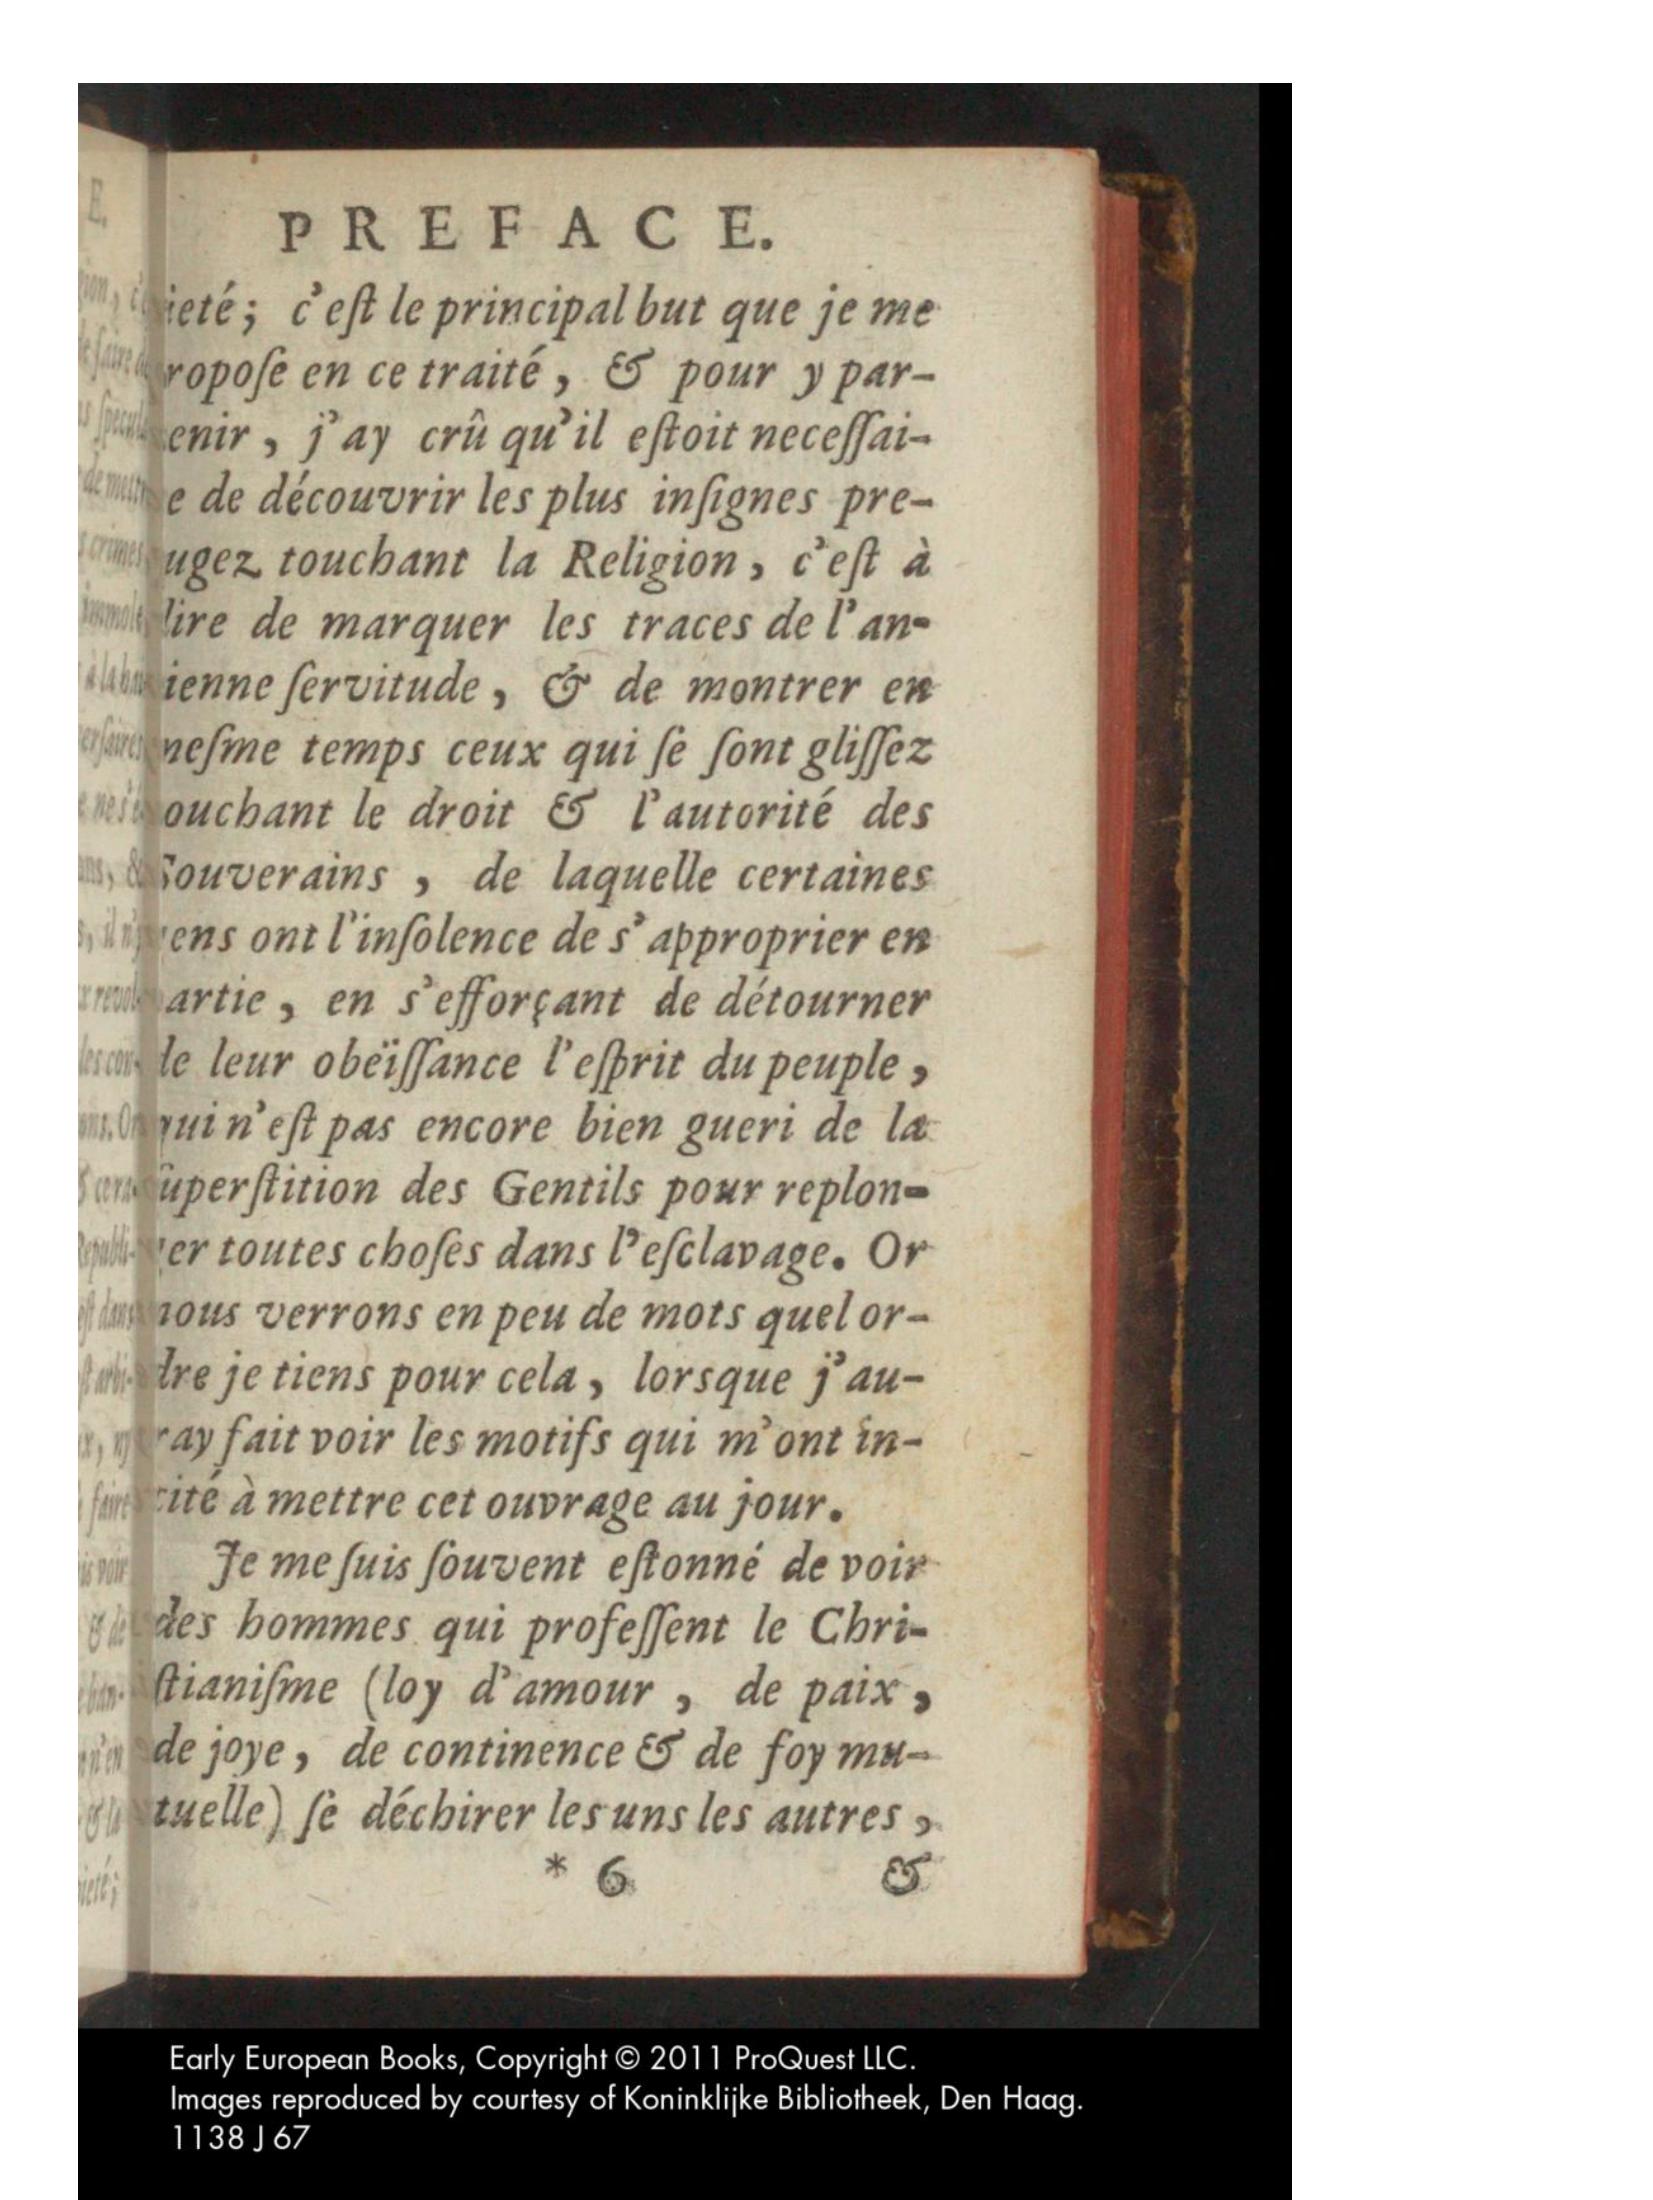 PREFACE.
ieté; c'eſt le principal but que je me
ropoſe en ce traité, & pour y par-
enir, j'ay crû qu'il eſtoit neceſſai-
e de découvrir les plus inſignes pre-
ugez touchant la Religion, c'eſt à
dire de marquer les traces de l'an-
ienne ſervitude, & de montrer en
meſme temps ceux qui ſe ſont gliſſez
ouchant le droit & l'autorité des
Souverains, de laquelle certaines
ens ont l'inſolence de s'approprier en
artie, en s'efforçant de détourner
de leur obëiſſance l'eſprit du peuple,
qui n'eſt pas encore bien gueri de la
uperſtition des Gentils pour replon-
er toutes choſes dans l'eſclavage. Or
nous verrons en peu de mots quel or-
dre je tiens pour cela, lorsque j'au-
ray fait voir les motifs qui m'ont in-
cité à mettre cet ouvrage au jour.
Je me ſuis ſouvent eſtonné de voir
des hommes qui profeſſent le Chri-
ſtianiſme (loy d'amour, de paix,
de joye, de continence & de foy mu-
tuelle) ſe déchirer les uns les autres,
* 6 &
Early European Books, Copyright © 2011 ProQuest LLC.
Images reproduced by courtesy of Koninklijke Bibliotheek, Den Haag.
1138 J 67